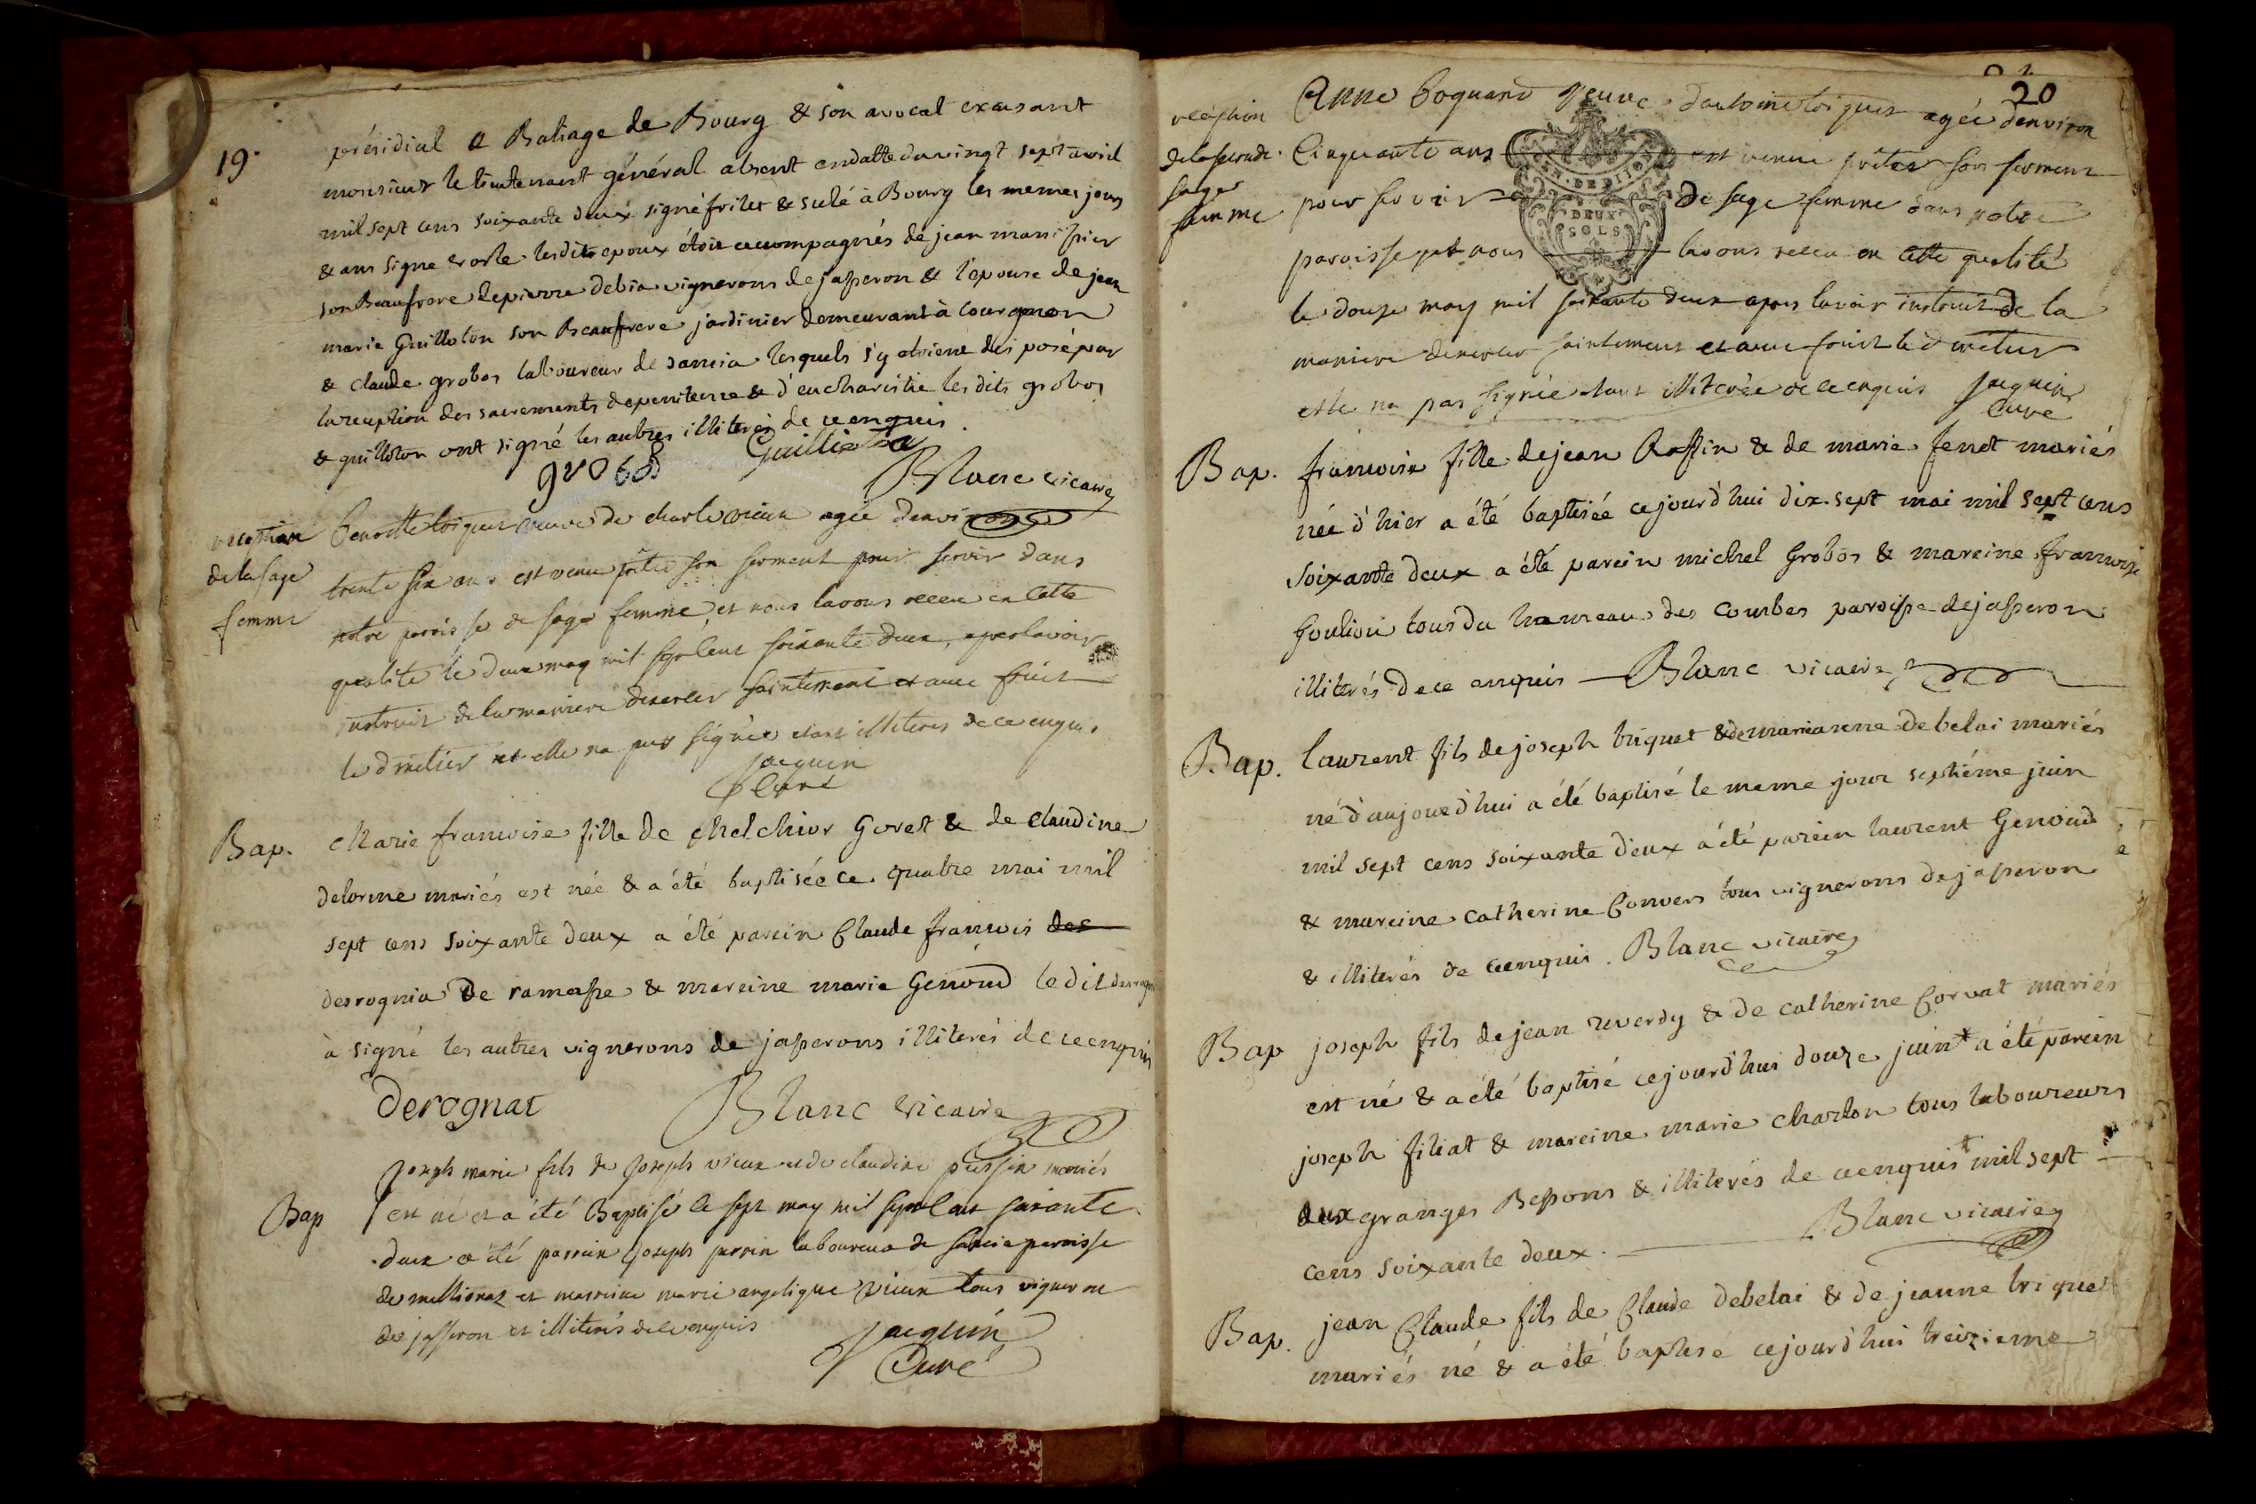 19.
présidial & Baliage de Bourg & son avocat exausant
monsieur le lieutenant général absent en datte du vingt sept avril
mil sept cens soixante deux signé frilet & sielé à Bourg les memes jours
& ans signe les dits epoux étoit accompagnés de jean
son Beaufrere de pierre debia vignerons de jasseron & l'epouse de jean
marie Guilloton son Beaufrere jardinier demeurant à
& Claude grobos laboureur de sancia lesquels s'y etoient disposé par
la reception des sacrements de penitence & d'eucharistie les dits grobos
& guilloton ont signé les autres illiterés de ce enquis.
grobos Guilloton
Blanc vicaire
reception
de la sage
femme
benoitte briquet veuve de charle vieux agée denviron
trente six ans est venu prêter son serment pour servir dans
notre paroisse de sage femme, et nous lavons receu en cette
qualité le deux may mil sept cent soixante deux, apres lavoir
instruit de la maniere dexercer saintement et avec fruit
le d metier et elle na pas signée etant illiteree de ce enquis.
Jacquin
Curé
Bap.
Marie francoise fille de Melchior Goret & de Claudine
delorme mariés est née & a été baptisée ce quatre mai mil
sept cens soixante deux a été parein Claude francois des
desrognia de ramasse & mareine marie Genoud le dit
à signé les autres vignerons de jasserons illiterés de ce enquis
Derognat Blanc vicaire
Bap
Joseph marie fils de Joseph vieux et de claudine perrin mariés
est né et a été Baptisé le sept may mil sept cent soixante
deux a été parrain Joseph perrin laboureur de sancia paroisse
de meillionaz et marreine marie angelique vieux tous vigneron
de jasseron et illiterés de ce enquis
Jacquin
Curé
20
reception
de la seconde
sage
femme
Anne Goguand Veuve dantoine briquet agée denviron
Cinquante ans est venue prêter son serment
pour servir de sage femme dans notre
paroisse et nous lavons receu en cette qualité
DEUX
SOLS
le douze may mil soixante deux apres lavoir instruit de la
maniere dexercer saintement et avec fruit le d metier
et elle na pas signée etant illiterée de ce enquis Jacquin
Curé
Bap.
francoise fille de jean Rossin & de marie ferret mariés
née d'hier a été baptisée cejourd'hui dix sept mai mil sept cens
soixante deux a été parein michel Grobos & mareine francoise
Goulion tous du hameau des Combes paroisse de jasseron
illiterés de ce enquis Blanc vicaire
Bap.
laurent fils de joseph briquet & de marianne debelai mariés
né d'aujourd'hui a été baptisé le meme jour septiéme juin
mil sept cens soixante deux a été parein laurent Genoud
& mareine catherine Convers tous vignerons de jasseron
& illiterés de ce enquis. Blanc vicaire
Bap
joseph fils de jean reverdy & de catherine Corvat mariés
est né & a été baptisé cejourd'hui douze juin* a été parein
joseph filiat & mareine marie Charlon tous laboureurs
aux granges Bessons & illiterés de ce enquis * mil sept
cens soixante deux. Blanc vicaire
Bap.
jean Claude fils de Claude debelai & de jeanne briquet
mariés né & a été baptisé cejourd'hui treizieme